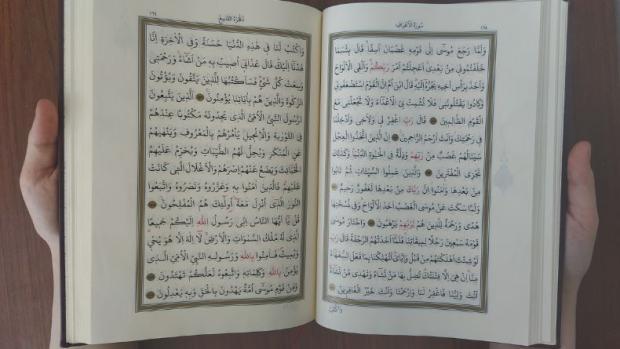 سُورَةُ الْأَعْرَافِ ١٦٨
وَلَمَّا رَجَعَ مُوسَىٰ إِلَىٰ قَوْمِهِ غَضْبَانَ أَسِفًا قَالَ بِئْسَمَا
خَلَفْتُمُونِي مِنْ بَعْدِي أَعَجِلْتُمْ أَمْرَ رَبِّكُمْ وَأَلْقَى الْأَلْوَاحَ
وَأَخَذَ بِرَأْسِ أَخِيهِ يَجُرُّهُ إِلَيْهِ قَالَ ابْنَ أُمَّ إِنَّ الْقَوْمَ اسْتَضْعَفُونِي
وَكَادُوا يَقْتُلُونَنِي فَلَا تُشْمِتْ بِيَ الْأَعْدَاءَ وَلَا تَجْعَلْنِي مَعَ
الْقَوْمِ الظَّالِمِينَ قَالَ رَبِّ اغْفِرْ لِي وَلِأَخِي وَأَدْخِلْنَا
فِي رَحْمَتِكَ وَأَنْتَ أَرْحَمُ الرَّاحِمِينَ إِنَّ الَّذِينَ اتَّخَذُوا الْعِجْلَ
سَيَنَالُهُمْ غَضَبٌ مِنْ رَبِّهِمْ وَذِلَّةٌ فِي الْحَيٰوةِ الدُّنْيَا وَكَذٰلِكَ
نَجْزِي الْمُفْتَرِينَ وَالَّذِينَ عَمِلُوا السَّيِّئَاتِ ثُمَّ تَابُوا
مِنْ بَعْدِهَا وَآمَنُوا إِنَّ رَبَّكَ مِنْ بَعْدِهَا لَغَفُورٌ رَحِيمٌ
وَلَمَّا سَكَتَ عَنْ مُوسَى الْغَضَبُ أَخَذَ الْأَلْوَاحَ وَفِي نُسْخَتِهَا
هُدًى وَرَحْمَةٌ لِلَّذِينَ هُمْ لِرَبِّهِمْ يَرْهَبُونَ وَاخْتَارَ مُوسَىٰ
قَوْمَهُ سَبْعِينَ رَجُلًا لِمِيقَاتِنَا فَلَمَّا أَخَذَتْهُمُ الرَّجْفَةُ قَالَ رَبِّ
لَوْ شِئْتَ أَهْلَكْتَهُمْ مِنْ قَبْلُ وَإِيَّايَ أَتُهْلِكُنَا بِمَا فَعَلَ السُّفَهَاءُ
مِنَّا إِنْ هِيَ إِلَّا فِتْنَتُكَ تُضِلُّ بِهَا مَنْ تَشَاءُ وَتَهْدِي مَنْ تَشَاءُ
أَنْتَ وَلِيُّنَا فَاغْفِرْ لَنَا وَارْحَمْنَا وَأَنْتَ خَيْرُ الْغَافِرِينَ
وَاكْتُبْ
اَلْجُزْءُ التَّاسِعُ ١٦٩
وَاكْتُبْ لَنَا فِي هٰذِهِ الدُّنْيَا حَسَنَةً وَفِي الْآخِرَةِ إِنَّا
هُدْنَا إِلَيْكَ قَالَ عَذَابِي أُصِيبُ بِهِ مَنْ أَشَاءُ وَرَحْمَتِي
وَسِعَتْ كُلَّ شَيْءٍ فَسَأَكْتُبُهَا لِلَّذِينَ يَتَّقُونَ وَيُؤْتُونَ
الزَّكٰوةَ وَالَّذِينَ هُمْ بِآيَاتِنَا يُؤْمِنُونَ الَّذِينَ يَتَّبِعُونَ
الرَّسُولَ النَّبِيَّ الْأُمِّيَّ الَّذِي يَجِدُونَهُ مَكْتُوبًا عِنْدَهُمْ
فِي التَّوْرٰيةِ وَالْإِنْجِيلِ يَأْمُرُهُمْ بِالْمَعْرُوفِ وَيَنْهٰيهُمْ
عَنِ الْمُنْكَرِ وَيُحِلُّ لَهُمُ الطَّيِّبَاتِ وَيُحَرِّمُ عَلَيْهِمُ
الْخَبَائِثَ وَيَضَعُ عَنْهُمْ إِصْرَهُمْ وَالْأَغْلَالَ الَّتِي كَانَتْ
عَلَيْهِمْ فَالَّذِينَ آمَنُوا بِهِ وَعَزَّرُوهُ وَنَصَرُوهُ وَاتَّبَعُوا
النُّورَ الَّذِي أُنْزِلَ مَعَهُ أُولٰئِكَ هُمُ الْمُفْلِحُونَ
قُلْ يَا أَيُّهَا النَّاسُ إِنِّي رَسُولُ اللّٰهِ إِلَيْكُمْ جَمِيعًا
الَّذِي لَهُ مُلْكُ السَّمٰوَاتِ وَالْأَرْضِ لَا إِلٰهَ إِلَّا هُوَ يُحْيِي
وَيُمِيتُ فَآمِنُوا بِاللّٰهِ وَرَسُولِهِ النَّبِيِّ الْأُمِّيِّ الَّذِي
يُؤْمِنُ بِاللّٰهِ وَكَلِمَاتِهِ وَاتَّبِعُوهُ لَعَلَّكُمْ تَهْتَدُونَ
وَمِنْ قَوْمِ مُوسَىٰ أُمَّةٌ يَهْدُونَ بِالْحَقِّ وَبِهِ يَعْدِلُونَ